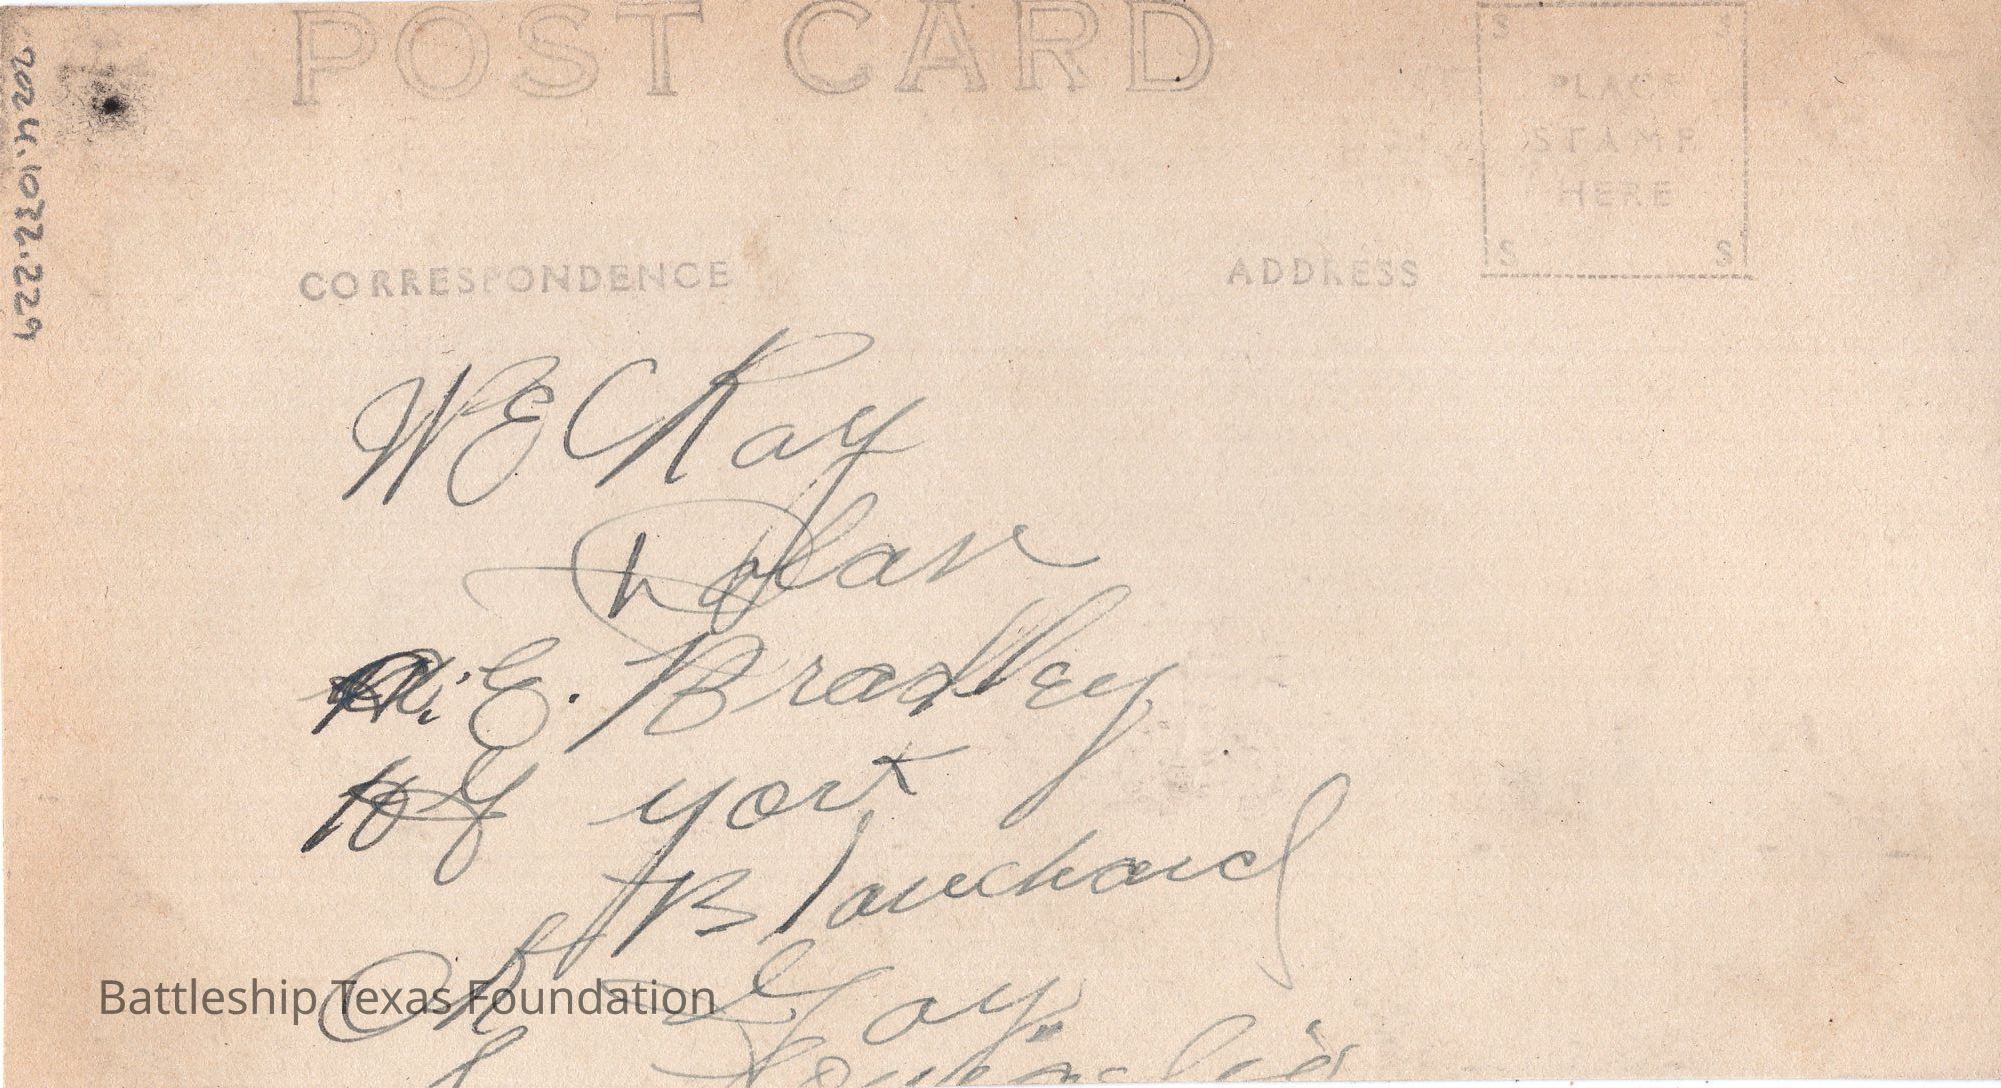 POST CARD
PLACE
STAMP
HERE
S S
S S
2024.1072.229
CORRESPONDENCE
ADDRESS
W E C Ray
Dolan
E. Bradley
york
Blanchard
Gay
Battleship Texas Foundation